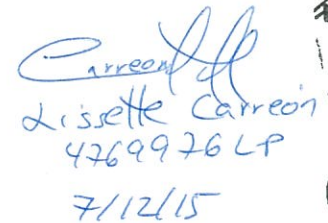 Carreon
Lissette Carreón
4769976 LP
7/12/15